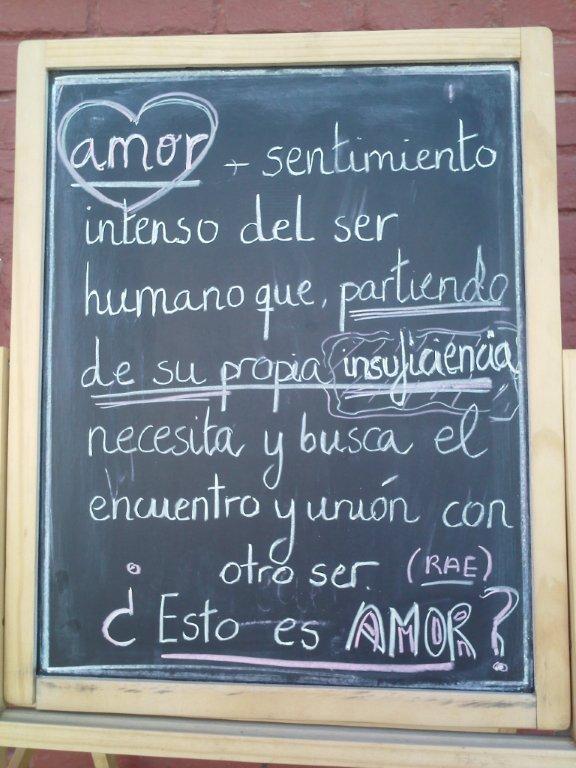 amor → sentimiento
intenso del ser
humano que, partiendo
de su propia insuficiencia
necesita y busca el
encuentro y unión con
otro ser. (RAE)
¿Esto es AMOR?